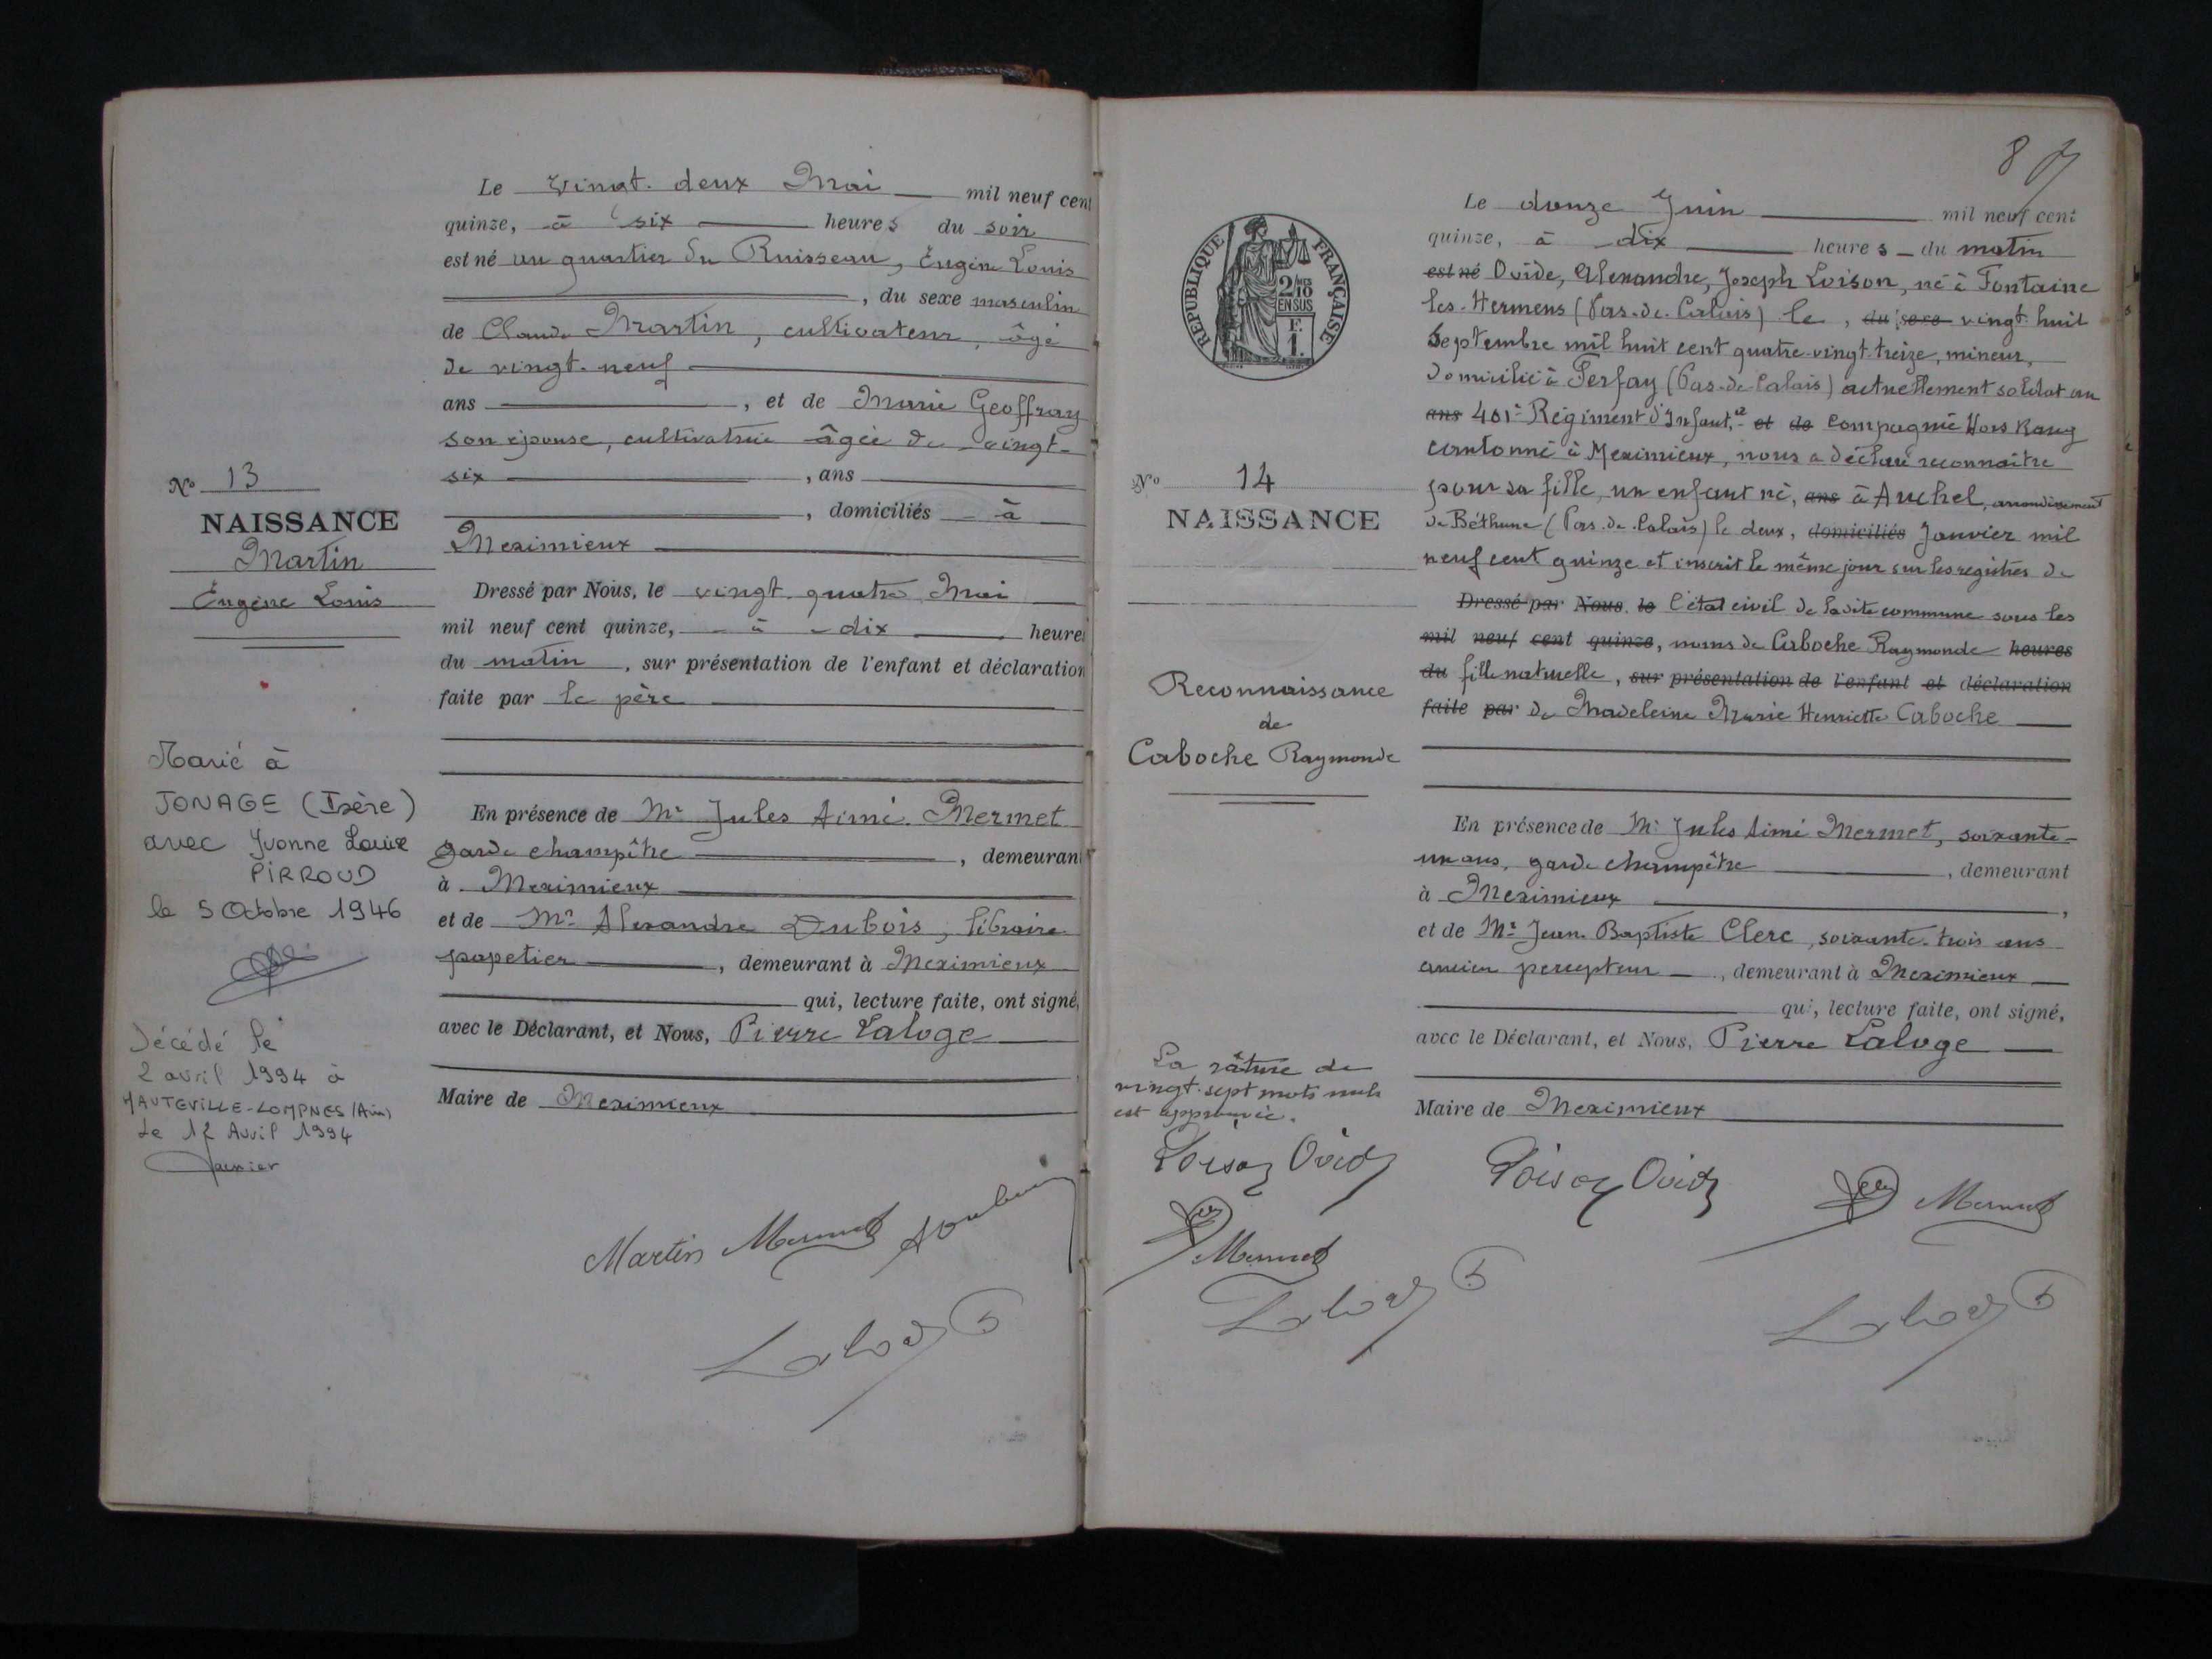 Le vingt-deux Mai mil neuf cent
quinze, à six heures du soir
est né au quartier du Ruisseau, Eugène Louis
, du sexe masculin
de Claude Martin, cultivateur, âgé
de vingt-neuf
ans , et de Marie Geoffray
son épouse, cultivatrice âgée de vingt-
six , ans
, domiciliés à
Meximieux
Dressé par Nous, le vingt-quatre Mai
mil neuf cent quinze, à dix heures
du matin, sur présentation de l'enfant et déclaration
faite par le père
En présence de Mr Jules Aimé Mermet
garde champêtre , demeurant
à Meximieux
et de Mr Alexandre Dubois, libraire
papetier , demeurant à Meximieux
qui, lecture faite, ont signé,
avec le Déclarant, et Nous, Pierre Laloge
Maire de Meximieux
Martin Mermet
No 13
NAISSANCE
Martin
Eugène Louis
Marié à
JONAGE (Isère)
avec Yvonne Louise
PIRROUD
le 5 Octobre 1946
Décédé le
2 avril 1994 à
HAUTEVILLE-LOMPNES (Ain)
Le Avril 1994
8
REPUBLIQUE FRANÇAISE
2/10
EN SUS
F.
1.
No 14
NAISSANCE
Reconnaissance
de
Caboche Raymonde
La râture de
vingt-sept mots nuls
est approuvée.
Loison Ovide
Mermet
Le douze Juin mil neuf cent
quinze, à dix heures du matin
est né Ovide, Alexandre, Joseph Loison, né à Fontaine
les-Hermens (Pas-de-Calais) le, du sexe vingt-huit
Septembre mil huit cent quatre-vingt-treize, mineur,
domicilié à Ferfay (Pas-de-Calais) actuellement soldat au
ans 401e Régiment d'Infant.ie et de Compagnie Hors Rang
cantonné à Meximieux, nous a déclaré reconnaître
pour sa fille, un enfant né, ans à Auchel, arrondissement
de Béthune (Pas-de-Calais) le deux, domiciliés Janvier mil
neuf cent quinze et inscrit le même jour sur les registres de
Dressé par Nous, le l'état civil de ladite commune sous les
mil neuf cent quinze, noms de Caboche Raymonde heures
du fille naturelle, sur présentation de l'enfant et déclaration
faite par de Madeleine Marie Henriette Caboche
En présence de Mr Jules Aimé Mermet, soixante-
un ans, garde champêtre , demeurant
à Meximieux ,
et de Mr Jean-Baptiste Clerc, soixante-trois ans
ancien percepteur , demeurant à Meximieux
qui, lecture faite, ont signé,
avec le Déclarant, et Nous, Pierre Laloge
Maire de Meximieux
Loison Ovide
Mermet